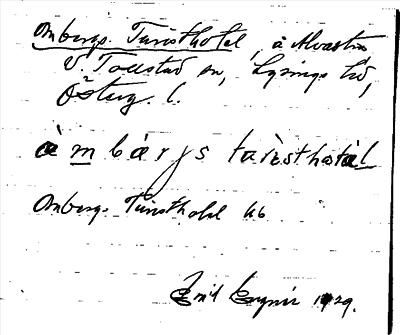 Ombergs Turisthotel, å Alvastra
V. Tollstad sn, Lysings hd,
Österg. l.
òmbàrjs tarìsthotäl
Ombergs Turisthotel kb
Emil 1929.